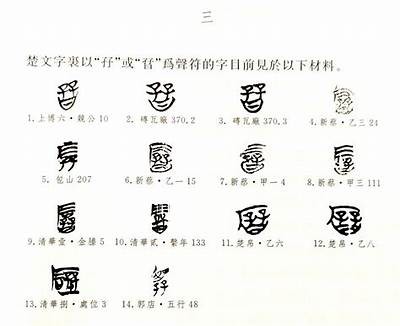 三
楚文字裏以“孖”或“孴”爲聲符的字目前見於以下材料。
1.上博六·競公10 2.磚瓦廠370.2 3.磚瓦廠370.3 4.新蔡·乙三24
5.包山207 6.新蔡·乙一15 7.新蔡·甲一4 8.新蔡·甲三111
9.清華壹·金縢5 10.清華貳·繫年133 11.楚帛·乙六 12.楚帛·乙八
13.清華捌·處位3 14.郭店·五行48